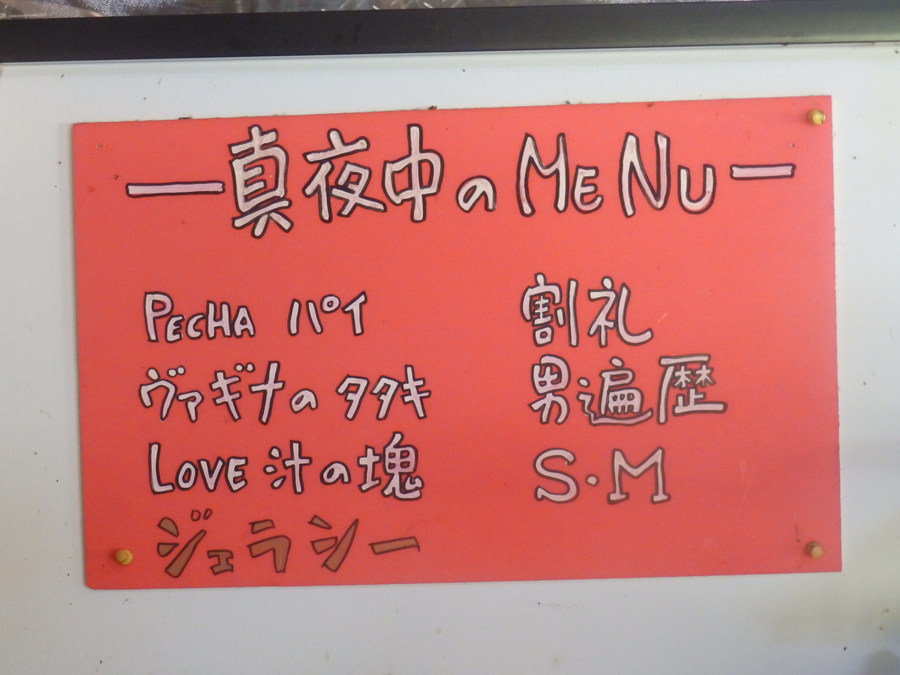 真夜中のMENU
PECHA パイ
ヴァギナのタタキ
LOVE 汁の塊
ジェラシー
割礼
男遍歴
S・M